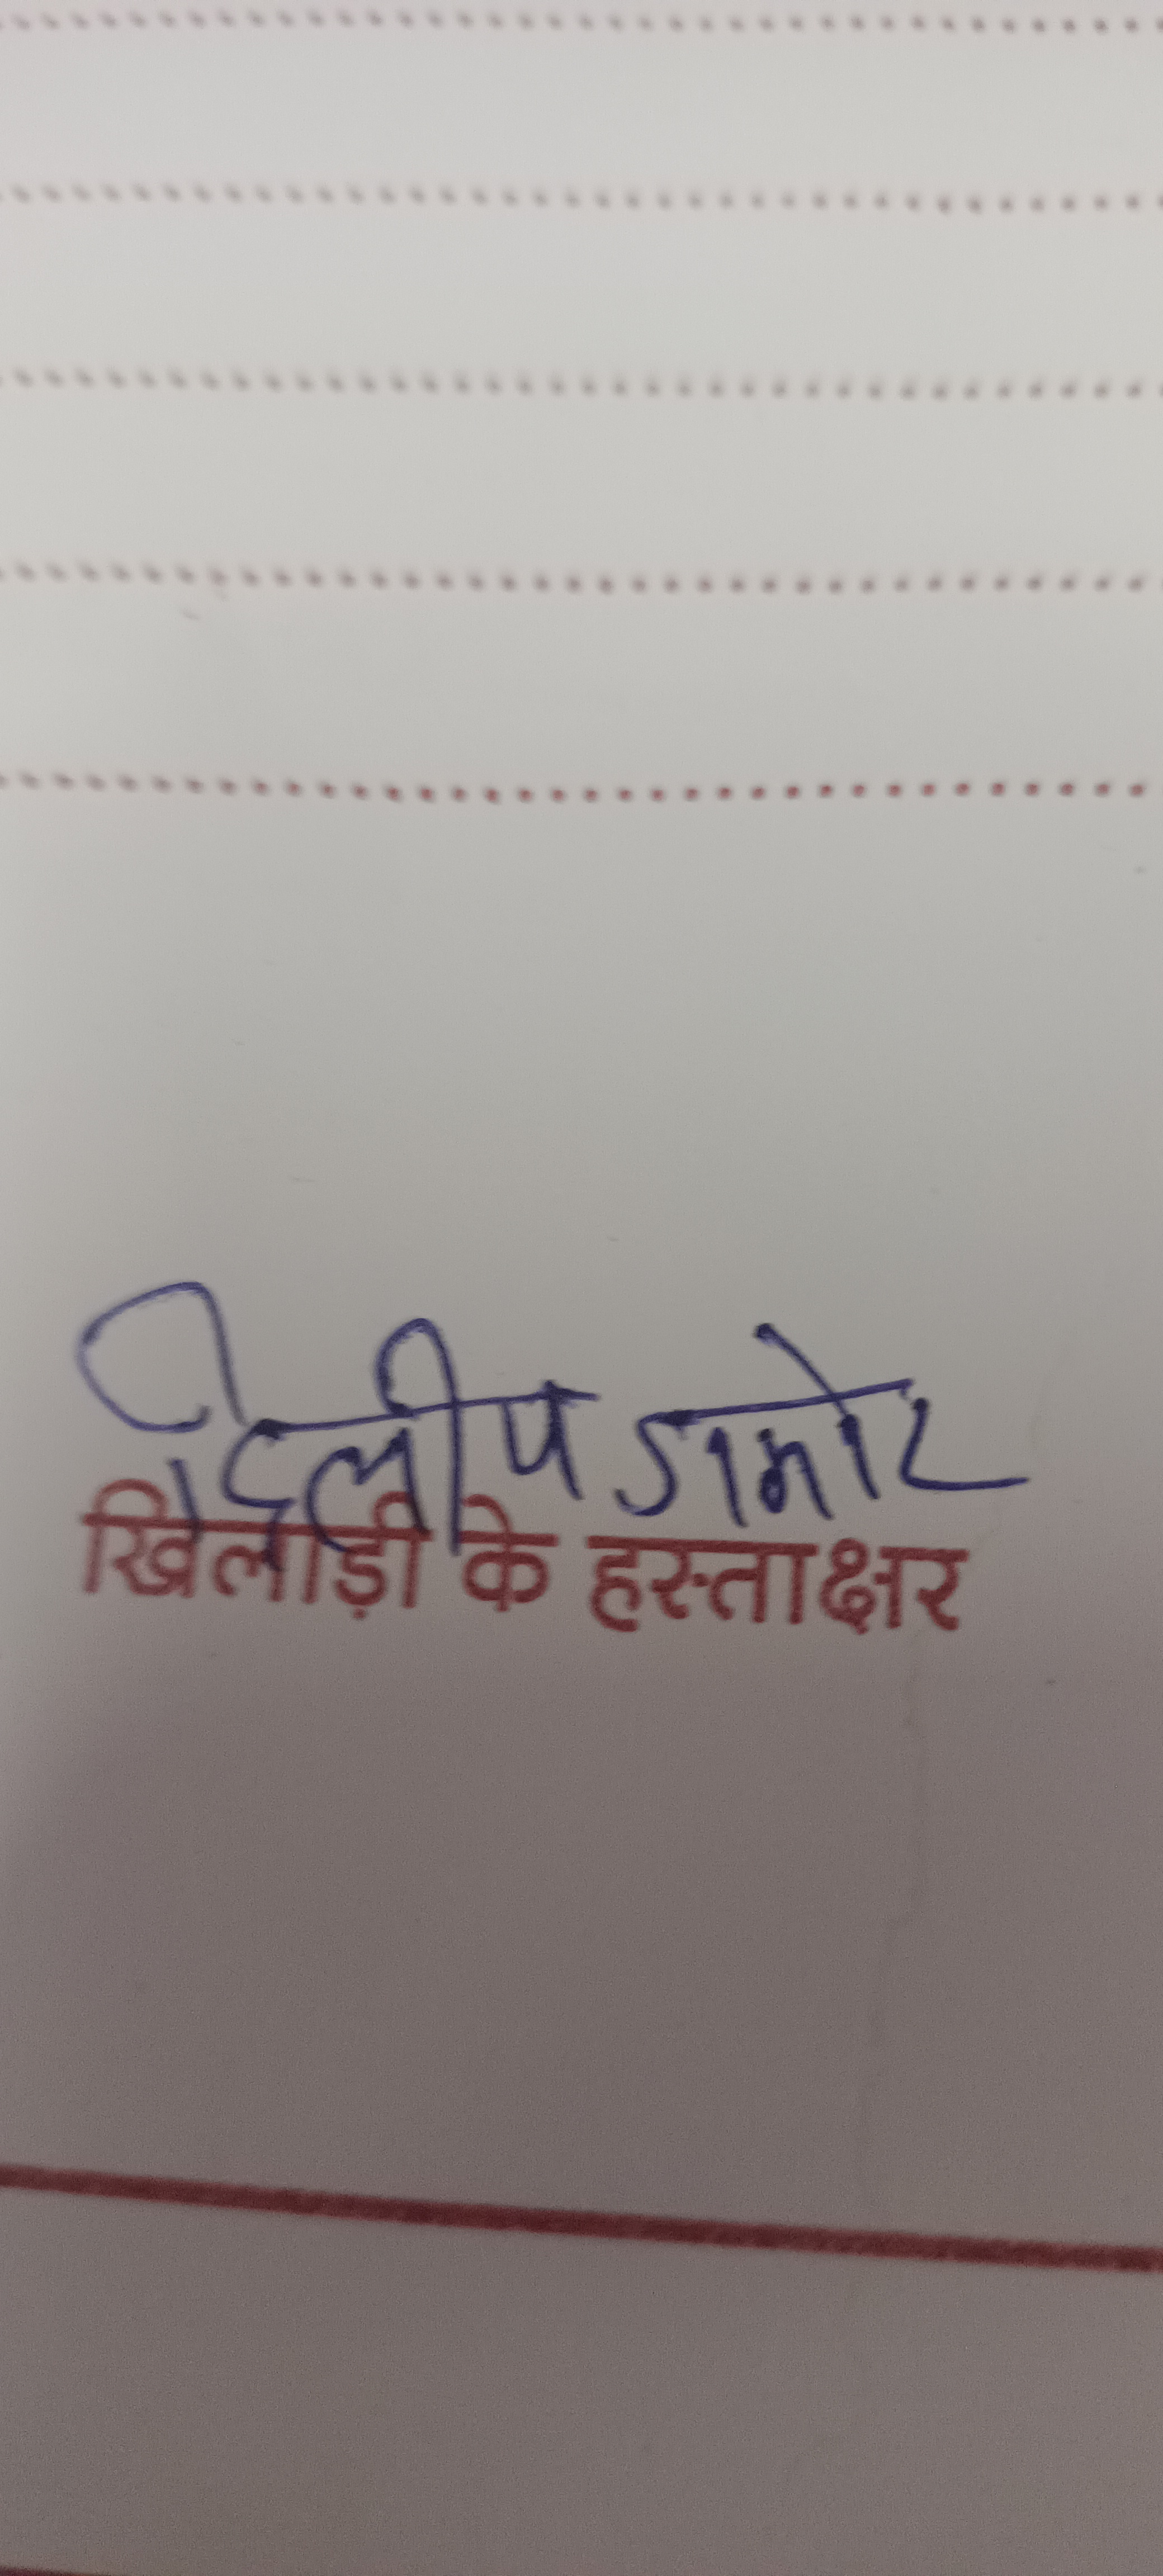 दिलीप डामोर
खिलाड़ी के हस्ताक्षर